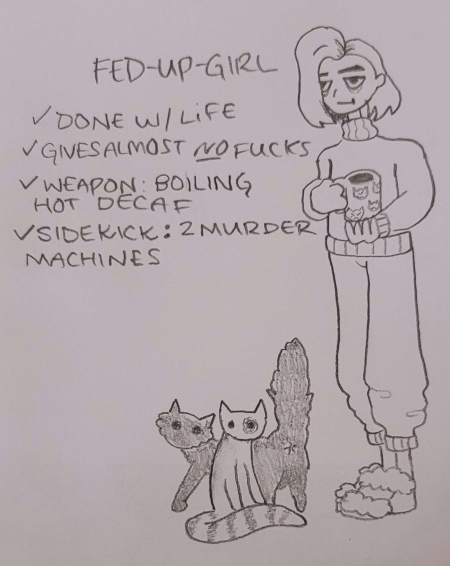 FED-UP-GIRL
✓ DONE W/ LiFE
✓ GIVES ALMOST NO FUCKS
✓ WEAPON: BOILING
HOT DECAF
✓ SIDEKICK: 2 MURDER
MACHINES